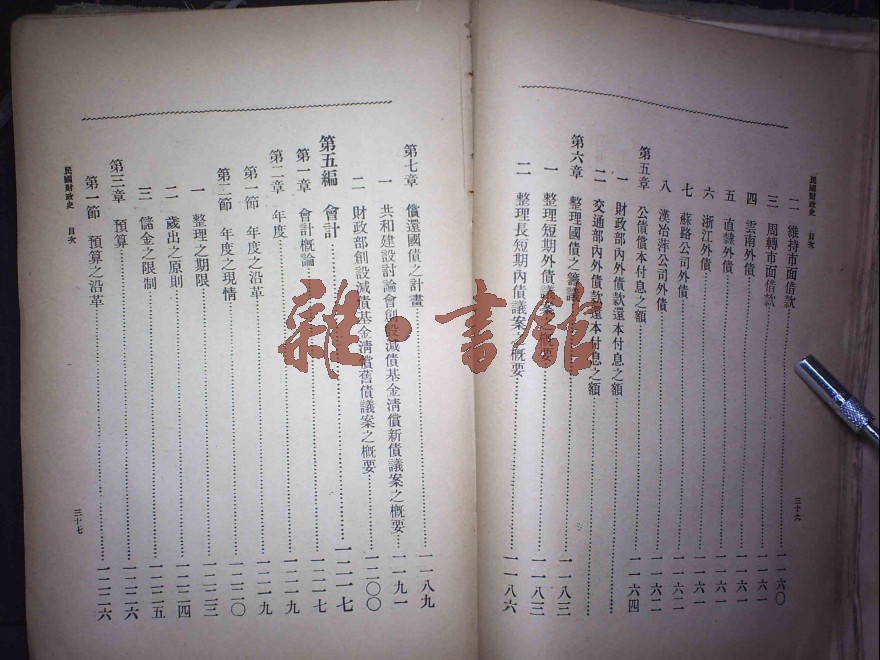 民國財政史 目次
三十六
二 維持市面借款……一一六〇
三 周轉市面借款……一一六一
四 雲南外債……一一六一
五 直隸外債……一一六一
六 浙江外債……一一六一
七 蘇路公司外債……一一六二
八 漢冶萍公司外債……一一六二
第五章 公債償本付息之額……一一六四
一 財政部內外債款還本付息之額
二 交通部內外債款還本付息之額
第六章 整理國債之籌議……一一八三
一 整理短期外債議案之概要……一一八三
二 整理長短期內債議案之概要……一一八六
第七章 償還國債之計畫……一一八九
一 共和建設討論會創設減債基金清償新債議案之概要……一一九一
二 財政部創設減債基金清償舊債議案之概要……一二〇〇
第五編 會計……一二一七
第一章 會計概論……一二一七
第二章 年度……一二一九
第一節 年度之沿革……一二一九
第二節 年度之現情……一二二〇
一 整理之期限……一二二三
二 歲出之原則……一二二四
三 儲金之限制……一二二五
第三章 預算……一二二六
第一節 預算之沿革……一二二六
民國財政史 目次
三十七
雜·書館